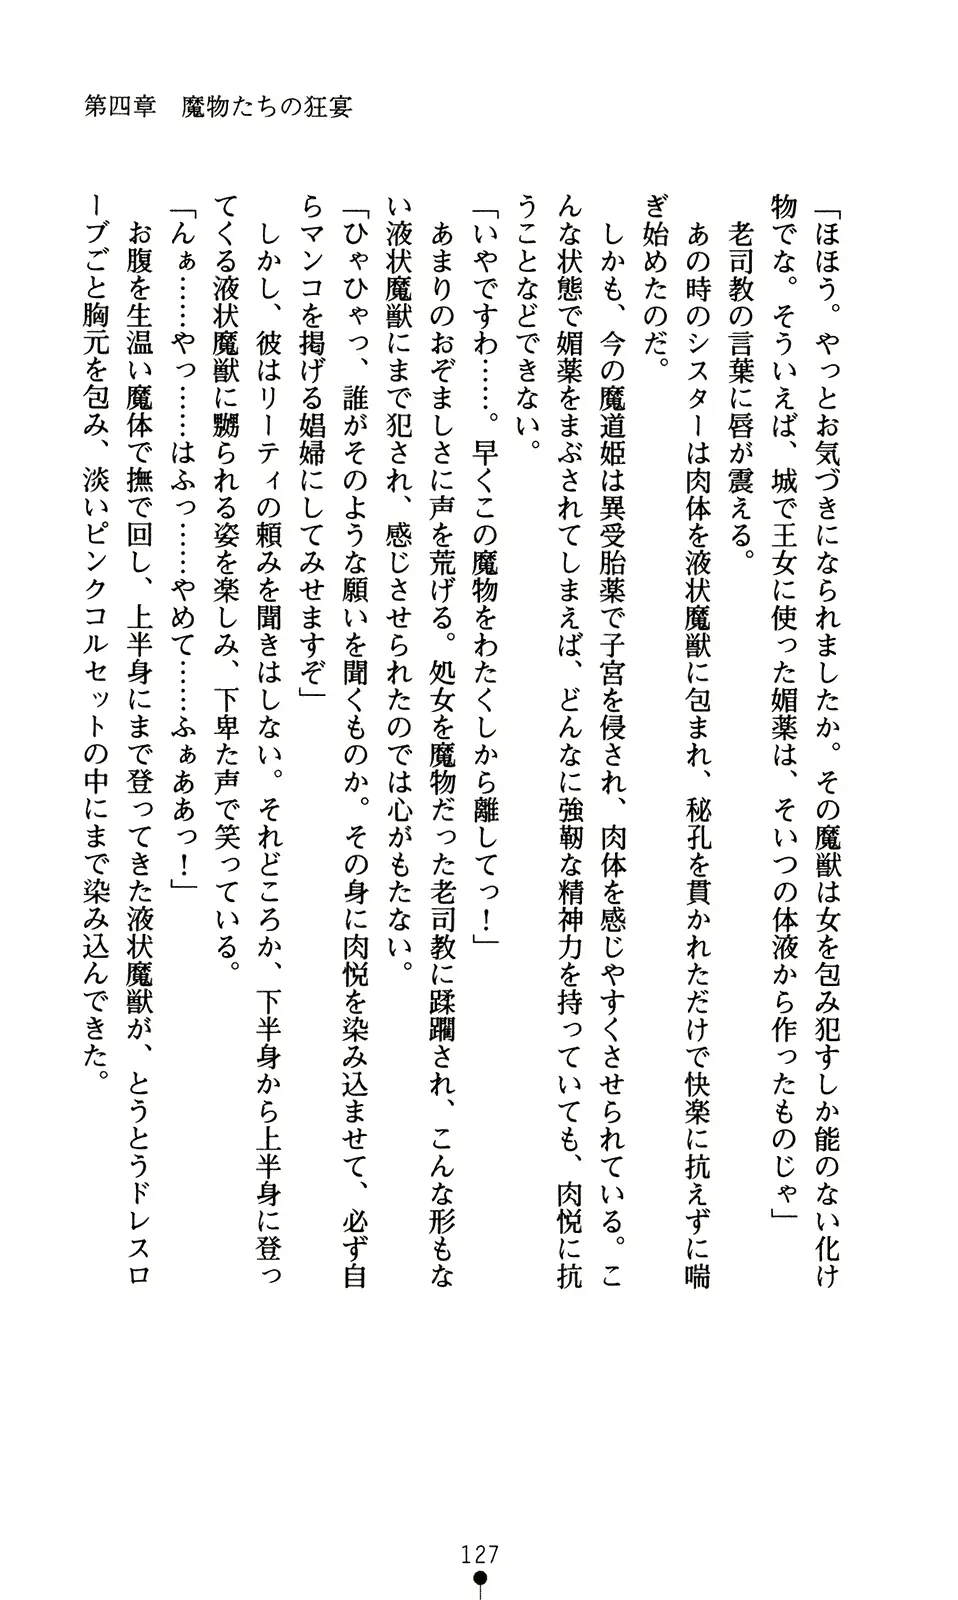 第四章　魔物たちの狂宴
「ほほう。やっとお気づきになられましたか。その魔獣は女を包み犯すしか能のない化け
物でな。そういえば、城で王女に使った媚薬は、そいつの体液から作ったものじゃ」
　老司教の言葉に唇が震える。
　あの時のシスターは肉体を液状魔獣に包まれ、秘孔を貫かれただけで快楽に抗えずに喘
ぎ始めたのだ。
　しかも、今の魔道姫は異受胎薬で子宮を侵され、肉体を感じやすくさせられている。こ
んな状態で媚薬をまぶされてしまえば、どんなに強靭な精神力を持っていても、肉悦に抗
うことなどできない。
「いやですわ……。早くこの魔物をわたくしから離してっ！」
　あまりのおぞましさに声を荒げる。処女を魔物だった老司教に蹂躙され、こんな形もな
い液状魔獣にまで犯され、感じさせられたのでは心がもたない。
「ひゃひゃっ、誰がそのような願いを聞くものか。その身に肉悦を染み込ませて、必ず自
らマンコを掲げる娼婦にしてみせますぞ」
　しかし、彼はリーティの頼みを聞きはしない。それどころか、下半身から上半身に登っ
てくる液状魔獣に嬲られる姿を楽しみ、下卑た声で笑っている。
「んぁ……やっ……はふっ……やめて……ふぁああっ！」
　お腹を生温い魔体で撫で回し、上半身にまで登ってきた液状魔獣が、とうとうドレスロ
ーブごと胸元を包み、淡いピンクコルセットの中にまで染み込んできた。
127